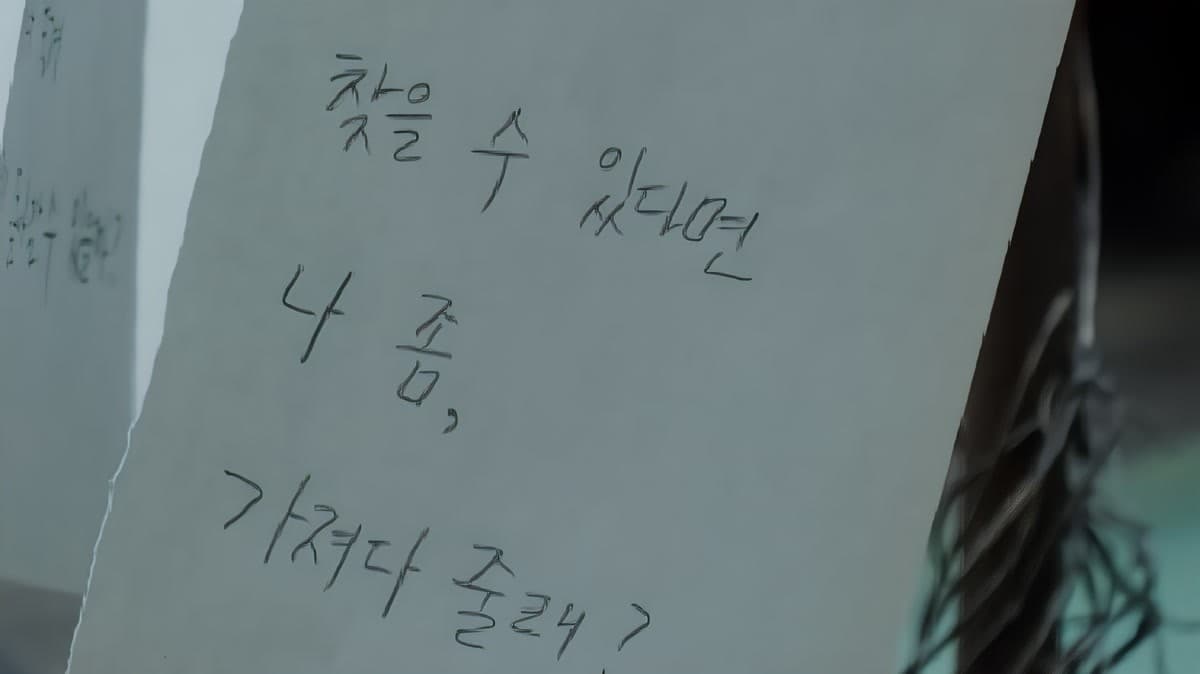 찾을 수 있다면
나 좀,
가져다 줄래?